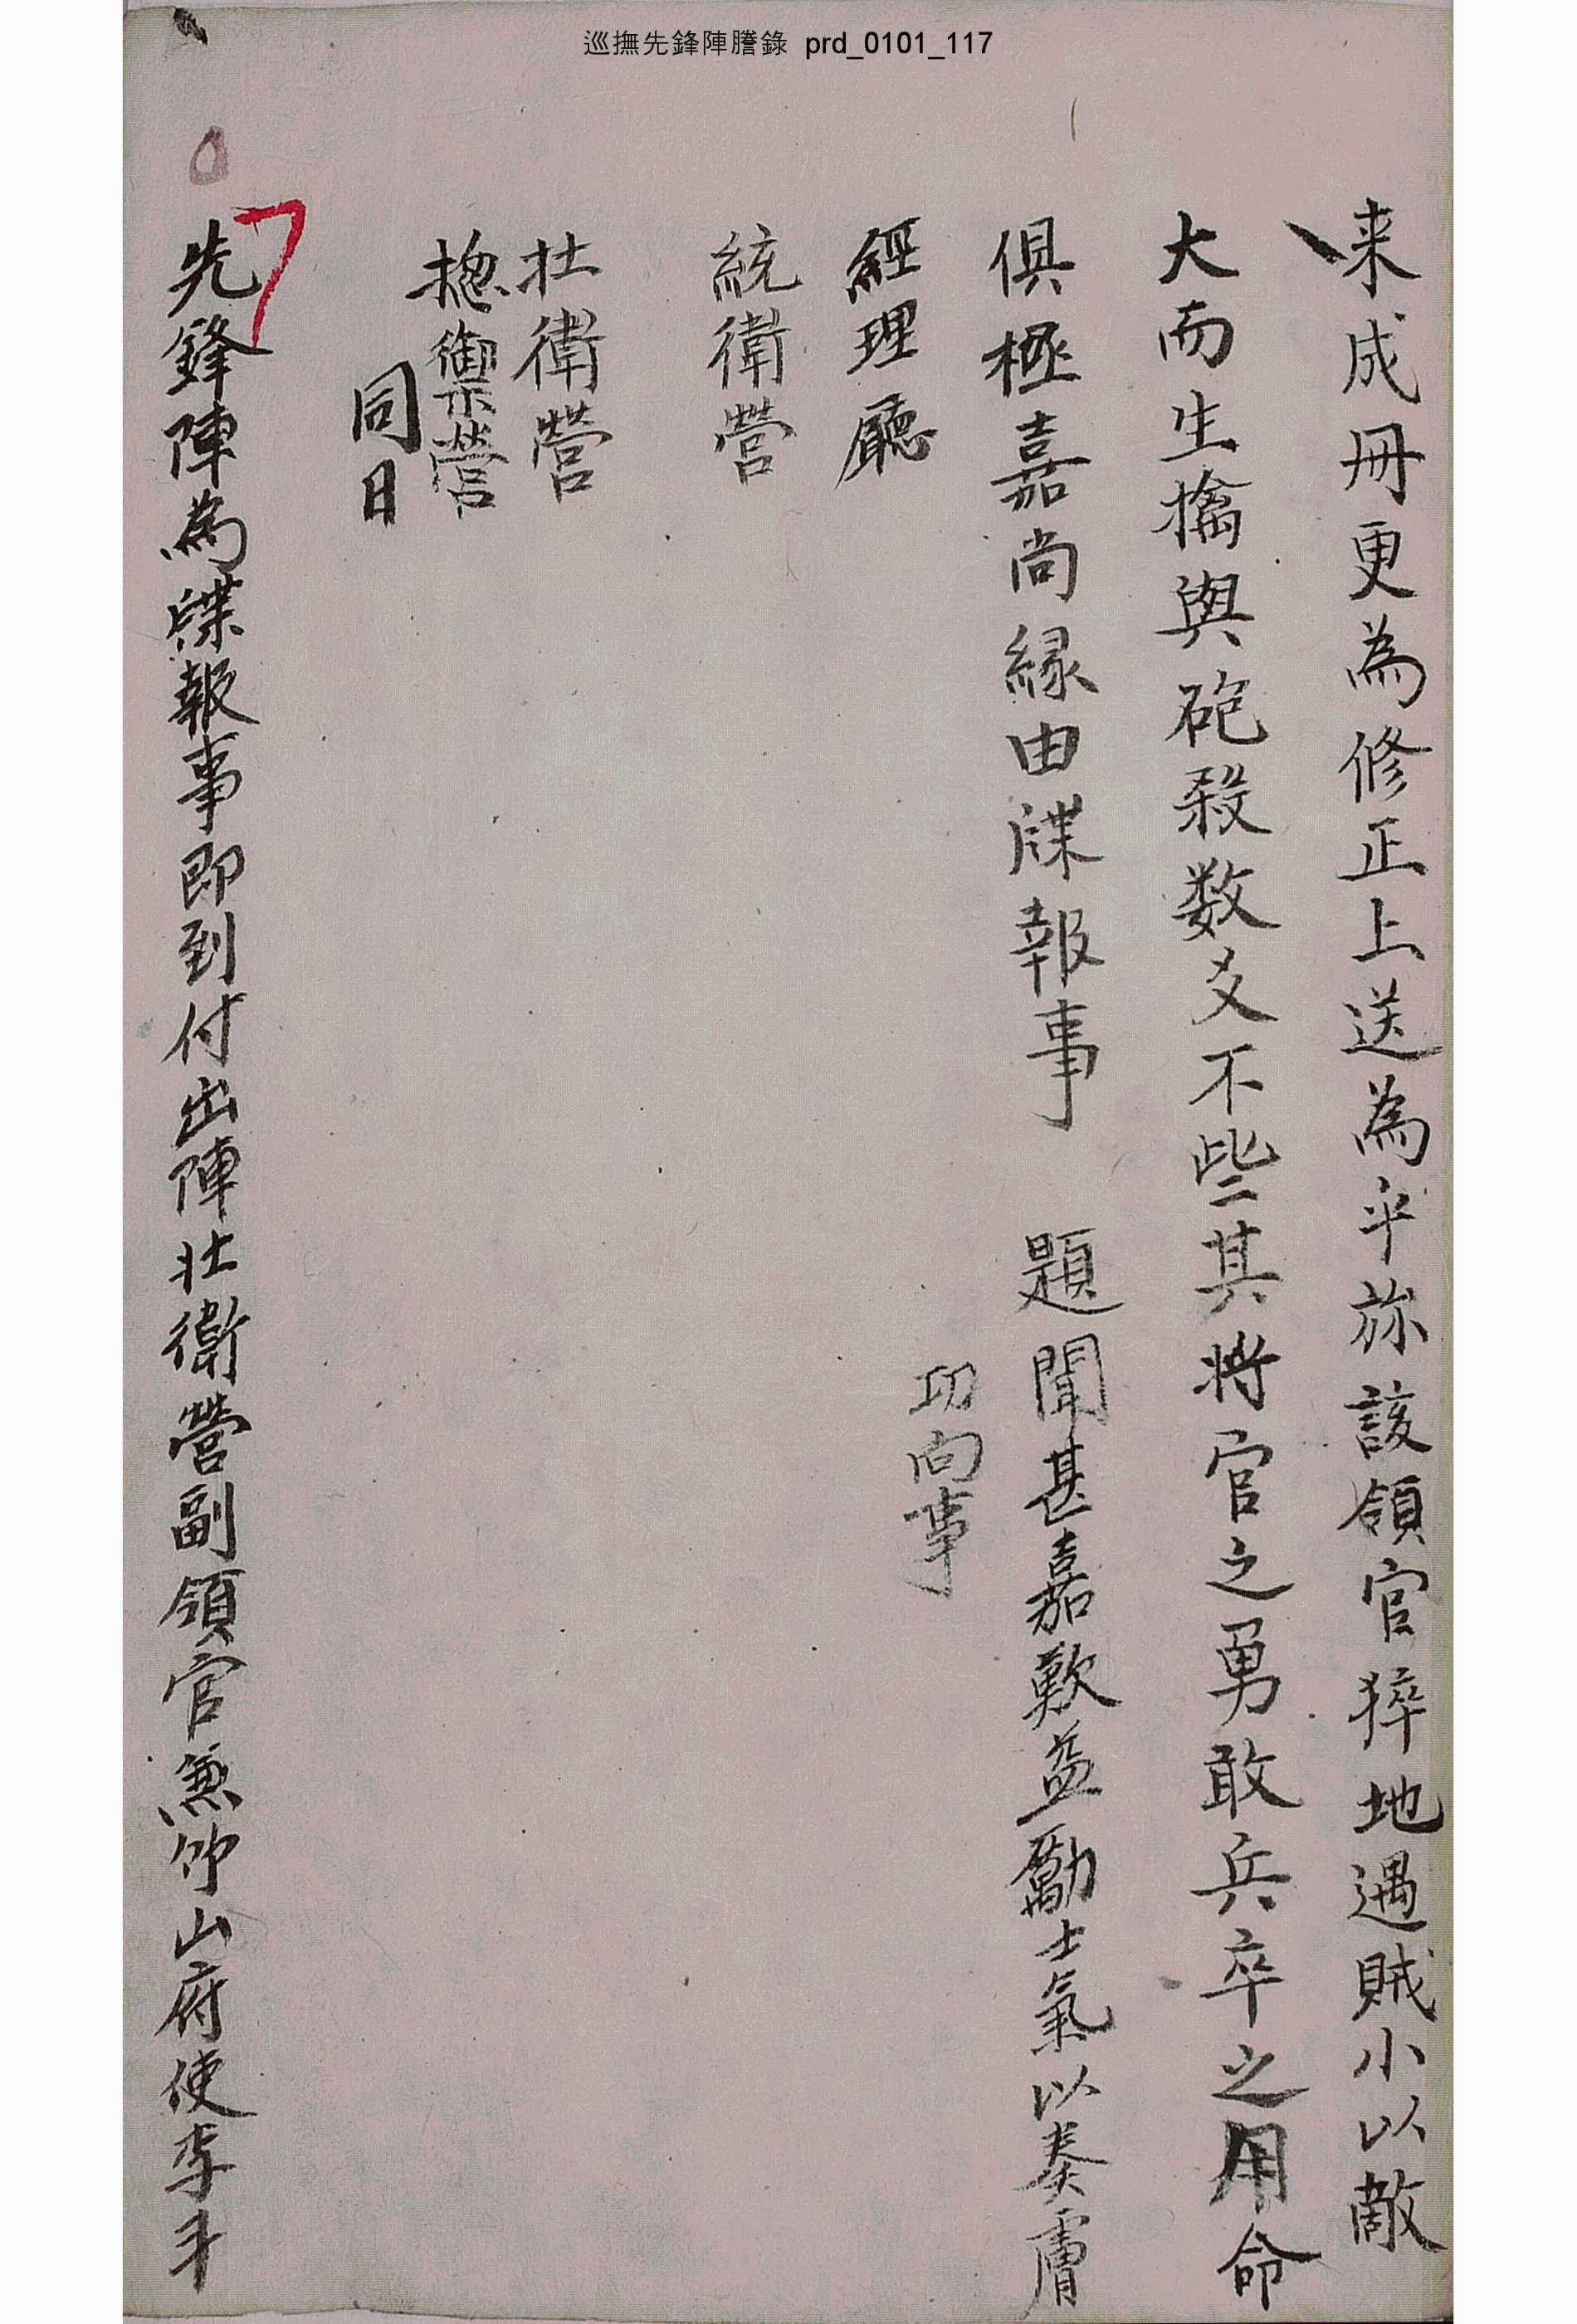 巡撫先鋒陣謄錄 prd_0101_117
来成冊更為修正上送為乎旀該領官猝地遇賊小以敵
大而生擒與砲殺数爻不些其將官之勇敢兵卒之用命
俱極嘉尚緣由牒報事 題聞甚嘉歎益勵士氣以奏膚
功向事
經理廳
統衛營
壯衛營
摠禦營
同日
先鋒陣為牒報事即到付出陣壯衛營副領官兼竹山府使李斗